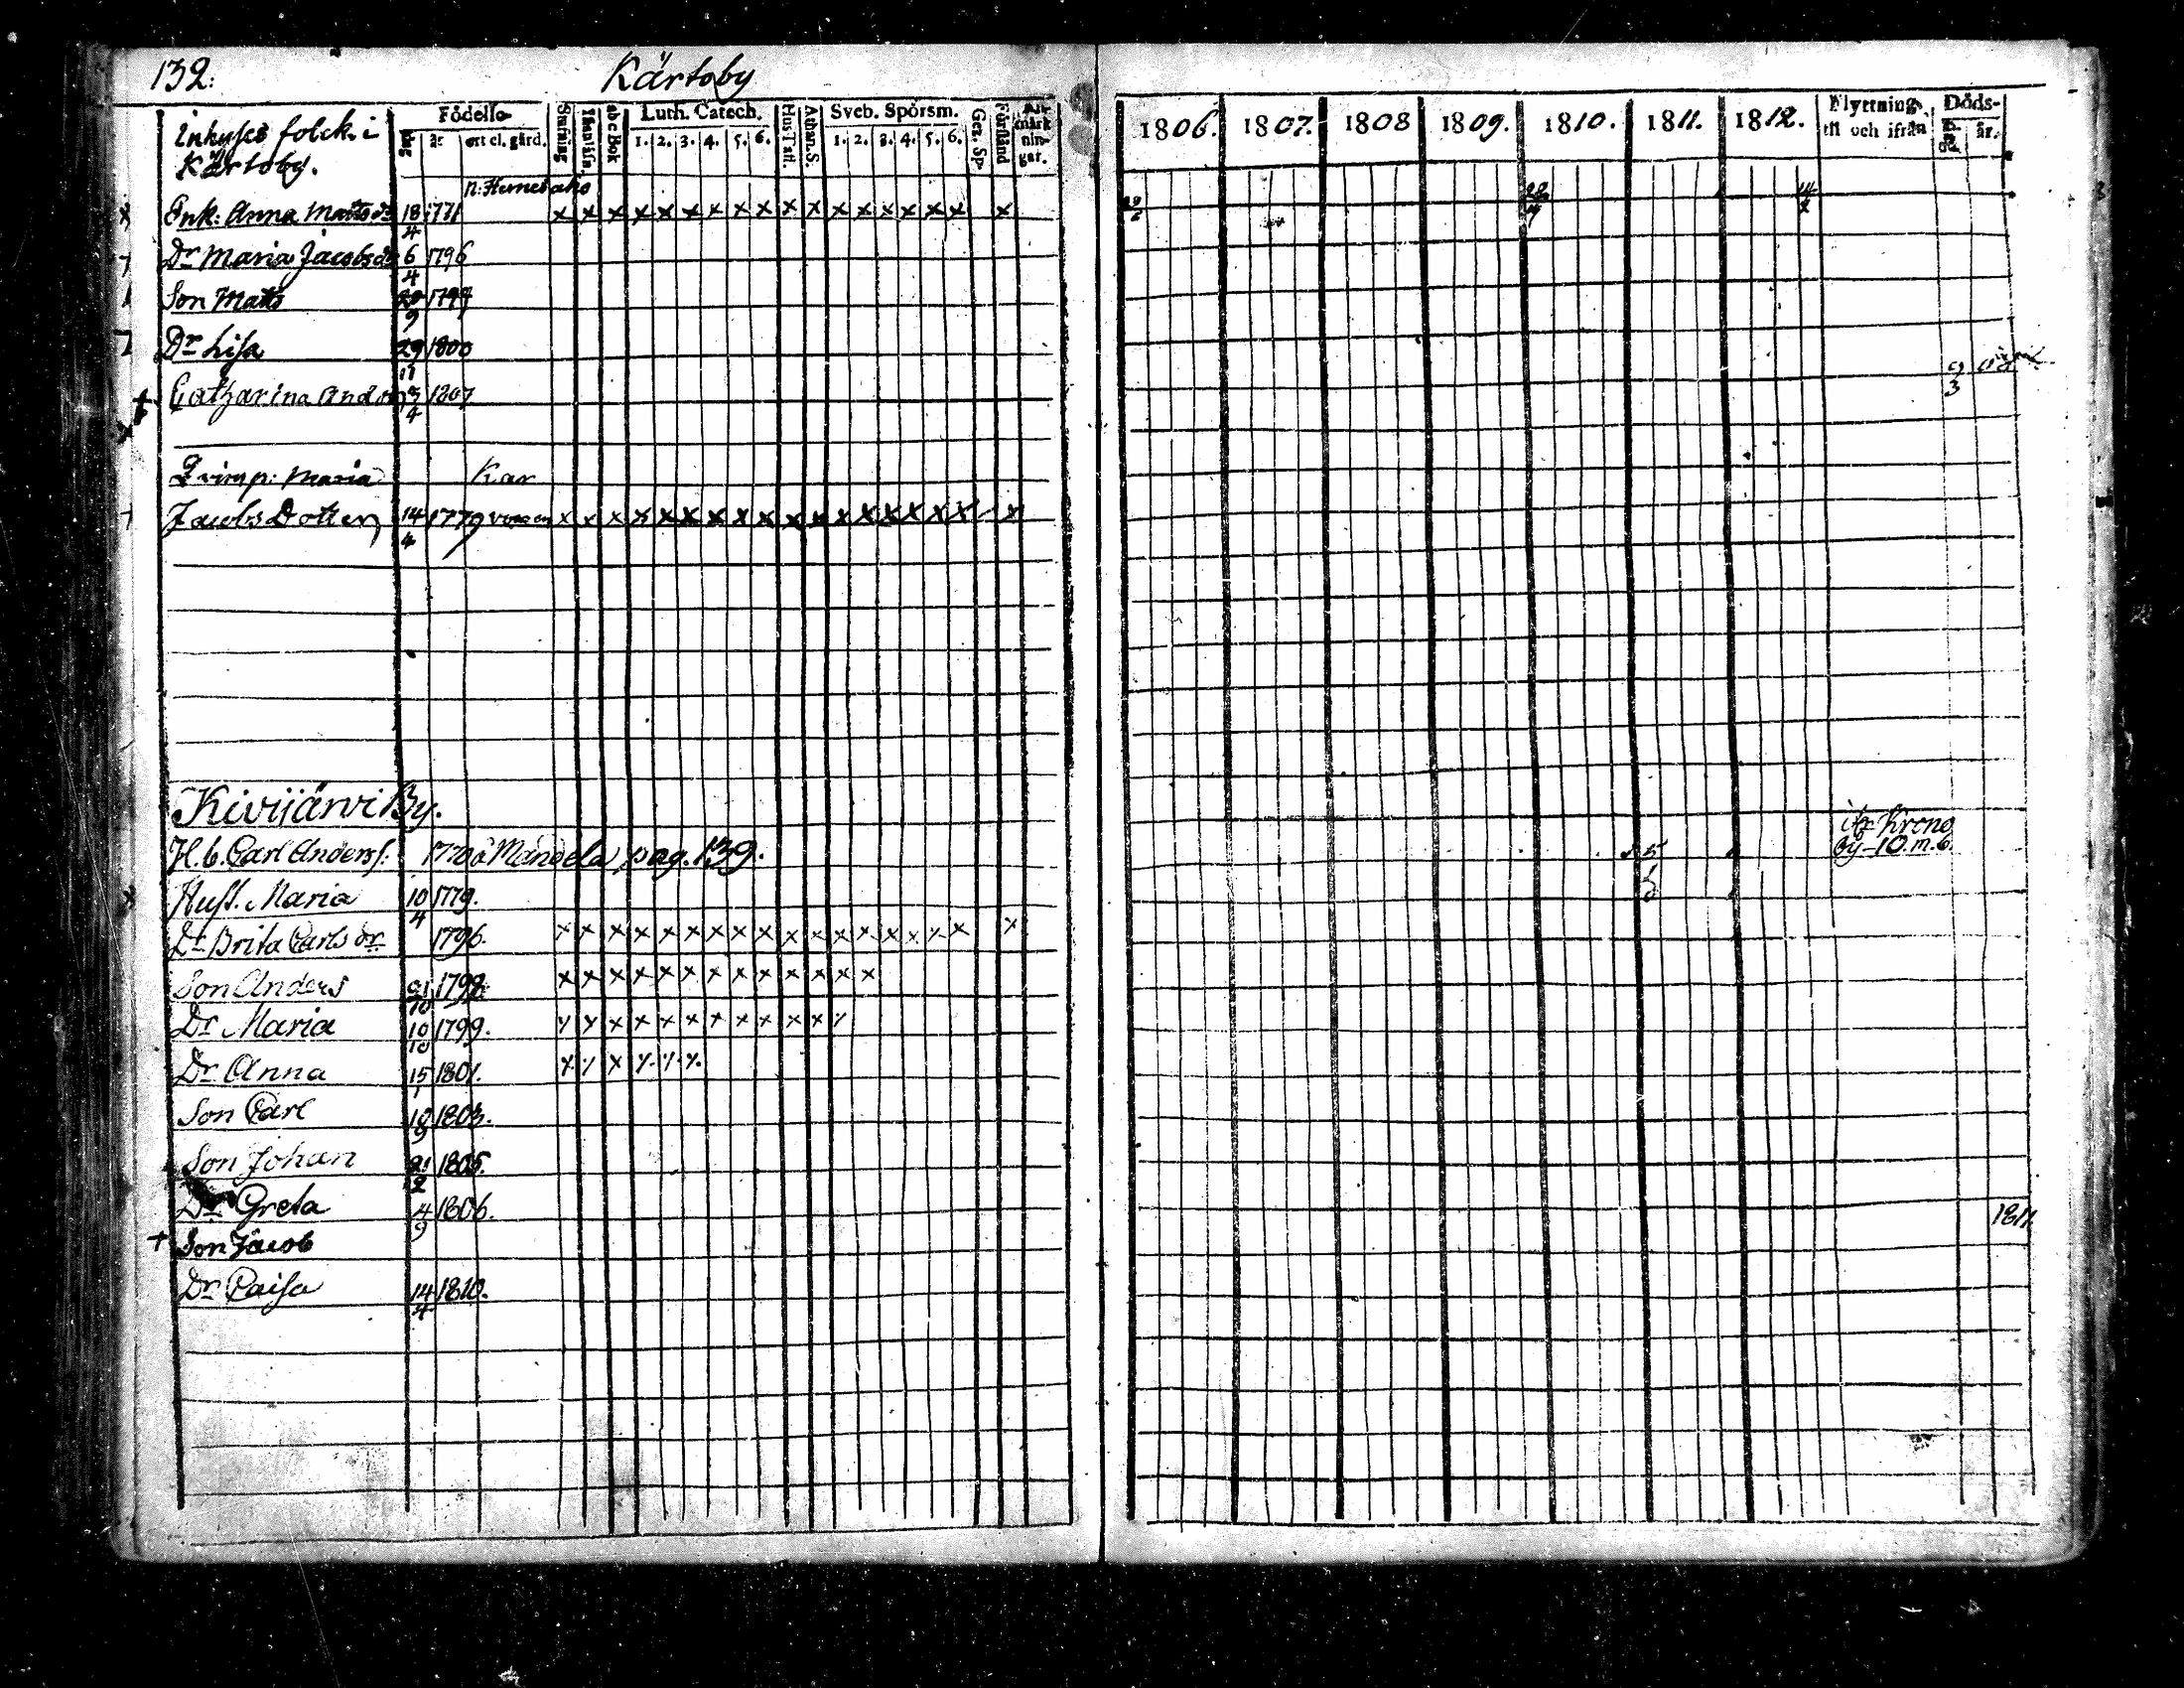 132.
Kärtoby
Inhyses folck i
Kärtoby.
Födelse
dag år ort el. gård.
Stafning
Innanläsn.
abc Bok
Luth. Catech.
1. 2. 3. 4. 5. 6.
Hus Tafl.
Athan. S.
Sveb. Spörsm.
1. 2. 3. 4. 5. 6.
Gez. Sp.
Förstånd
An-
märk
nin-
gar.
1806. 1807. 1808 1809. 1810. 1811. 1812.
Flyttning
til och ifrån
Döds-
dag år.
Enk: Anna Matts dr 18/4 1771 x x x x x x x x x x x x x x x x x x
Dr Maria Jacobs dr 6/4 1796
Son Matts 20/9 1797
Dr Lisa 29/11 1800
Catharina 3/4 1807
Qvinp: Maria Kar
Jacobs Dotter 14/4 1779 x x x x x x x x x x x x x x x x x x
Kivijärvi By.
H. b. Carl Anders: 1770 Månsela pag. 139.
ifr Krono
by 10. m. 6
Hust. Maria 10/4 1779.
Dr Brita Carls dr 1796. x x x x x x x x x x x x x x x x x x
Son Anders 21/10 1798. x x x x x x x x x x x x x
Dr Maria 10/10 1799. x x x x x x x x x x x x
Dr Anna 15/1 1801. x x x x x x
Son Carl 18/9 1803.
Son Johan 21/2 1805.
Dr Greta 4/9 1806.
+ Son Jacob 1811.
Dr Caisa 14/4 1810.